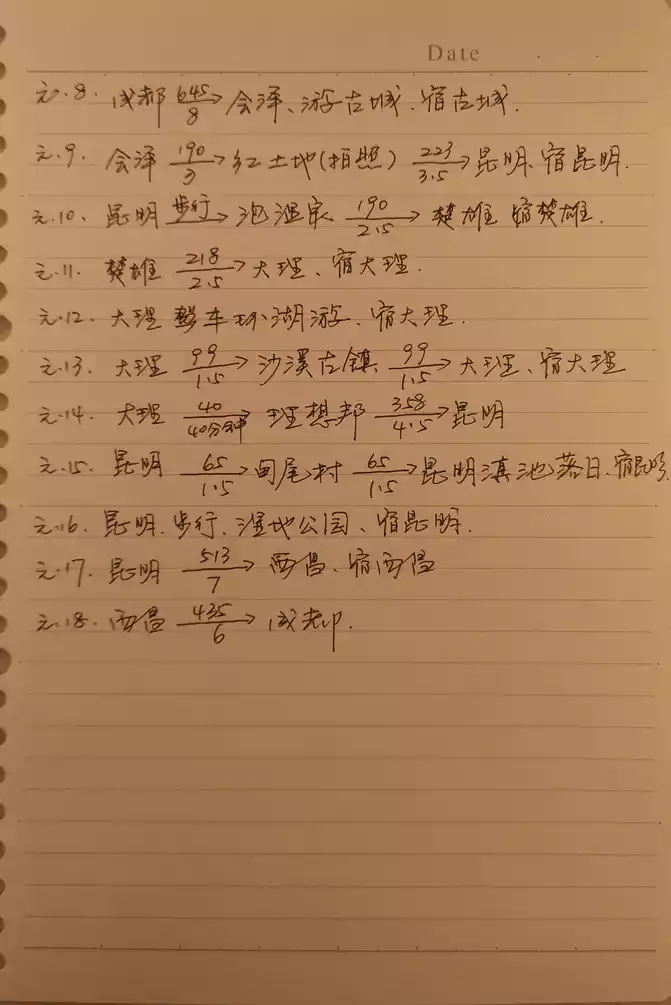 Date
元.8. 成都 645/8 → 会泽、游古城、宿古城.
元.9. 会泽 190/3 → 红土地(拍照) 223/3.5 → 昆明、宿昆明.
元.10、昆明 步行 → 泡温泉、190/2.5 → 楚雄 宿楚雄.
元.11. 楚雄 218/2.5 → 大理、宿大理.
元.12. 大理 整车环湖游、宿大理.
元.13. 大理 99/1.5 → 沙溪古镇、99/1.5 → 大理、宿大理
元.14. 大理 40/40分钟 → 理想邦 358/4.5 → 昆明
元.15. 昆明 65/1.5 → 甸尾村 65/1.5 → 昆明滇池落日、宿昆明
元.16. 昆明、步行、湿地公园、宿昆明.
元.17. 昆明 513/7 → 西昌、宿西昌
元.18. 西昌 435/6 → 成都.